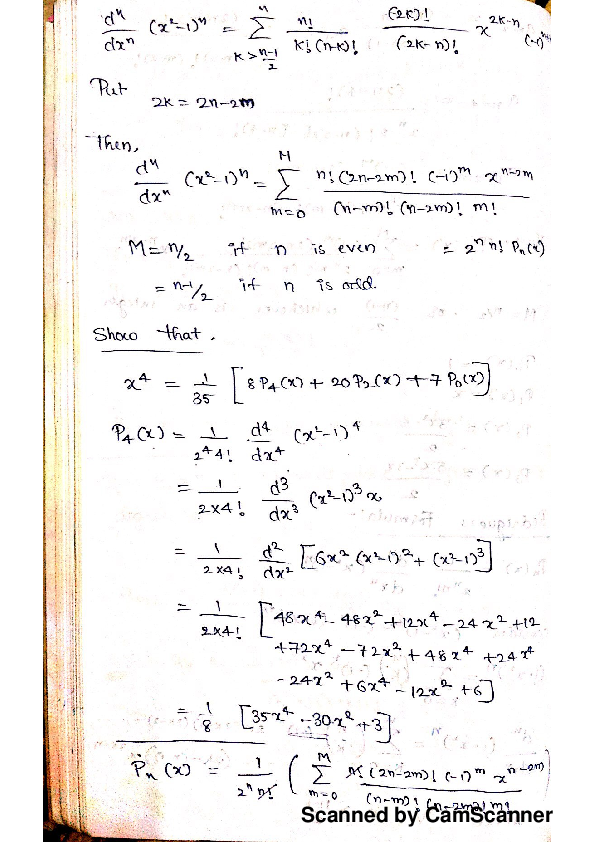 dⁿ/dxⁿ (x²-1)ⁿ = Σ_{k>n-1/2}^{n} n!/k!(n-k)! (2k)!/(2k-n)! x^{2k-n}
Put
2k = 2n-2m
Then,
dⁿ/dxⁿ (x²-1)ⁿ = Σ_{m=0}^{M} n! (2n-2m)! (-1)^m x^{n-2m} / (n-m)! (n-2m)! m!
M = n/2 if n is even = 2ⁿ n! Pₙ(x)
= n-1/2 if n is odd.
Show that.
x⁴ = 1/35 [8P₄(x) + 20P₂(x) + 7P₀(x)]
P₄(x) = 1/2⁴4! d⁴/dx⁴ (x²-1)⁴
= 1/2×4! d³/dx³ (x²-1)³ x
= 1/2×4! d²/dx² [6x² (x²-1)² + (x²-1)³]
= 1/2×4! [48x⁴ - 48x² + 12x⁴ - 24x² + 12
+72x⁴ - 72x² + 48x⁴ + 24x⁴
-24x² + 6x⁴ - 12x² + 6]
= 1/8 [35x⁴ - 30x² + 3]
Pₙ(x) = 1/2ⁿ n! (Σ_{m=0}^{M} n! (2n-2m)! (-1)^m x^{n-2m} / (n-m)! (n-2m)! m!)
Scanned by CamScanner